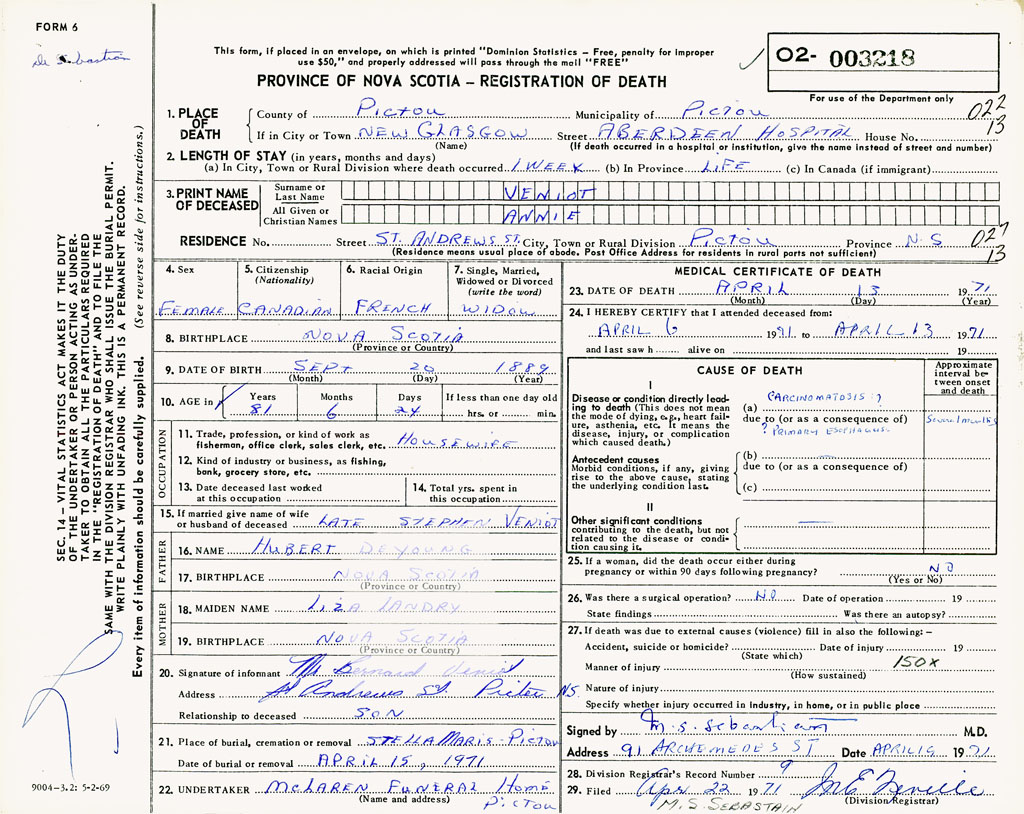 FORM 6
This form, if placed in an envelope, on which is printed "Dominion Statistics – Free, penalty for improper
use $50," and properly addressed will pass through the mail "FREE"
PROVINCE OF NOVA SCOTIA – REGISTRATION OF DEATH
O2- 003218
For use of the Department only
022
13
1. PLACE OF DEATH
County of Pictou Municipality of Pictou
If in City or Town NEW GLASGOW Street ABERDEEN HOSPITAL House No.
(Name) (If death occurred in a hospital or institution, give the name instead of street and number)
2. LENGTH OF STAY (in years, months and days)
(a) In City, Town or Rural Division where death occurred 1 WEEK (b) In Province LIFE (c) In Canada (if immigrant)
3. PRINT NAME OF DECEASED
Surname or Last Name VENIOT
All Given or Christian Names ANNIE
RESIDENCE No. Street ST. ANDREWS ST. City, Town or Rural Division Pictou Province N.S 027
13
(Residence means usual place of abode. Post Office Address for residents in rural parts not sufficient)
4. Sex
FEMALE
5. Citizenship
(Nationality)
CANADIAN
6. Racial Origin
FRENCH
7. Single, Married,
Widowed or Divorced
(write the word)
WIDOW
8. BIRTHPLACE NOVA SCOTIA
(Province or Country)
9. DATE OF BIRTH SEPT 20 1889
(Month) (Day) (Year)
10. AGE in
Years Months Days If less than one day old
81 6 24 hrs. or min.
OCCUPATION
11. Trade, profession, or kind of work as
fishermen, office clerk, sales clerk, etc. HOUSEWIFE
12. Kind of industry or business, as fishing,
bank, grocery store, etc.
13. Date deceased last worked
at this occupation
14. Total yrs. spent in
this occupation
15. If married give name of wife
or husband of deceased LATE STEPHEN VENIOT
FATHER
16. NAME HUBERT DEYOUNG
17. BIRTHPLACE NOVA SCOTIA
(Province or Country)
MOTHER
18. MAIDEN NAME LIZA LANDRY
19. BIRTHPLACE NOVA SCOTIA
(Province or Country)
20. Signature of informant Bernard Veniot
Address St Andrews St. Pictou NS.
Relationship to deceased SON
21. Place of burial, cremation or removal STELLA MARIS - PICTOU
Date of burial or removal APRIL 15, 1971
22. UNDERTAKER McLAREN FUNERAL Home
(Name and address) PICTOU
MEDICAL CERTIFICATE OF DEATH
23. DATE OF DEATH APRIL 13 1971
(Month) (Day) (Year)
24. I HEREBY CERTIFY that I attended deceased from:
APRIL 6 1971 to APRIL 13 1971
and last saw h alive on 19
CAUSE OF DEATH
Approximate
interval be-
tween onset
and death
I
Disease or condition directly lead-
ing to death (This does not mean
the mode of dying, e.g., heart fail-
ure, asthenia, etc. It means the
disease, injury, or complication
which caused death.)
(a) CARCINOMATOSIS ?
due to (or as a consequence of)
? PRIMARY ESOPHAGUS
Several months
Antecedent causes
Morbid conditions, if any, giving
rise to the above cause, stating
the underlying condition last.
(b)
due to (or as a consequence of)
(c)
II
Other significant conditions
contributing to the death, but not
related to the disease or condi-
tion causing it.
25. If a woman, did the death occur either during
pregnancy or within 90 days following pregnancy? NO
(Yes or No)
26. Was there a surgical operation? NO Date of operation 19
State findings Was there an autopsy?
27. If death was due to external causes (violence) fill in also the following: –
Accident, suicide or homicide? Date of injury 19
(State which)
Manner of injury 150X
(How sustained)
Nature of injury
Specify whether injury occurred in industry, in home, or in public place
Signed by M.S. Sebastian M.D.
Address 91 ARCHEMEDES ST Date APRIL 19 1971
28. Division Registrar's Record Number 9
29. Filed Apr 22 1971
M.S. SEBASTAIN (Division Registrar)
SEC. 14 – VITAL STATISTICS ACT MAKES IT THE DUTY
OF THE UNDERTAKER OR PERSON ACTING AS UNDER-
TAKER TO OBTAIN ALL THE PARTICULARS REQUIRED
IN THE "REGISTRATION OF DEATH" AND TO FILE THE
SAME WITH THE DIVISION REGISTRAR WHO SHALL ISSUE THE BURIAL PERMIT.
WRITE PLAINLY WITH UNFADING INK. THIS IS A PERMANENT RECORD.
Every item of information should be carefully supplied. (See reverse side for instructions.)
9004-3.2: 5-2-69